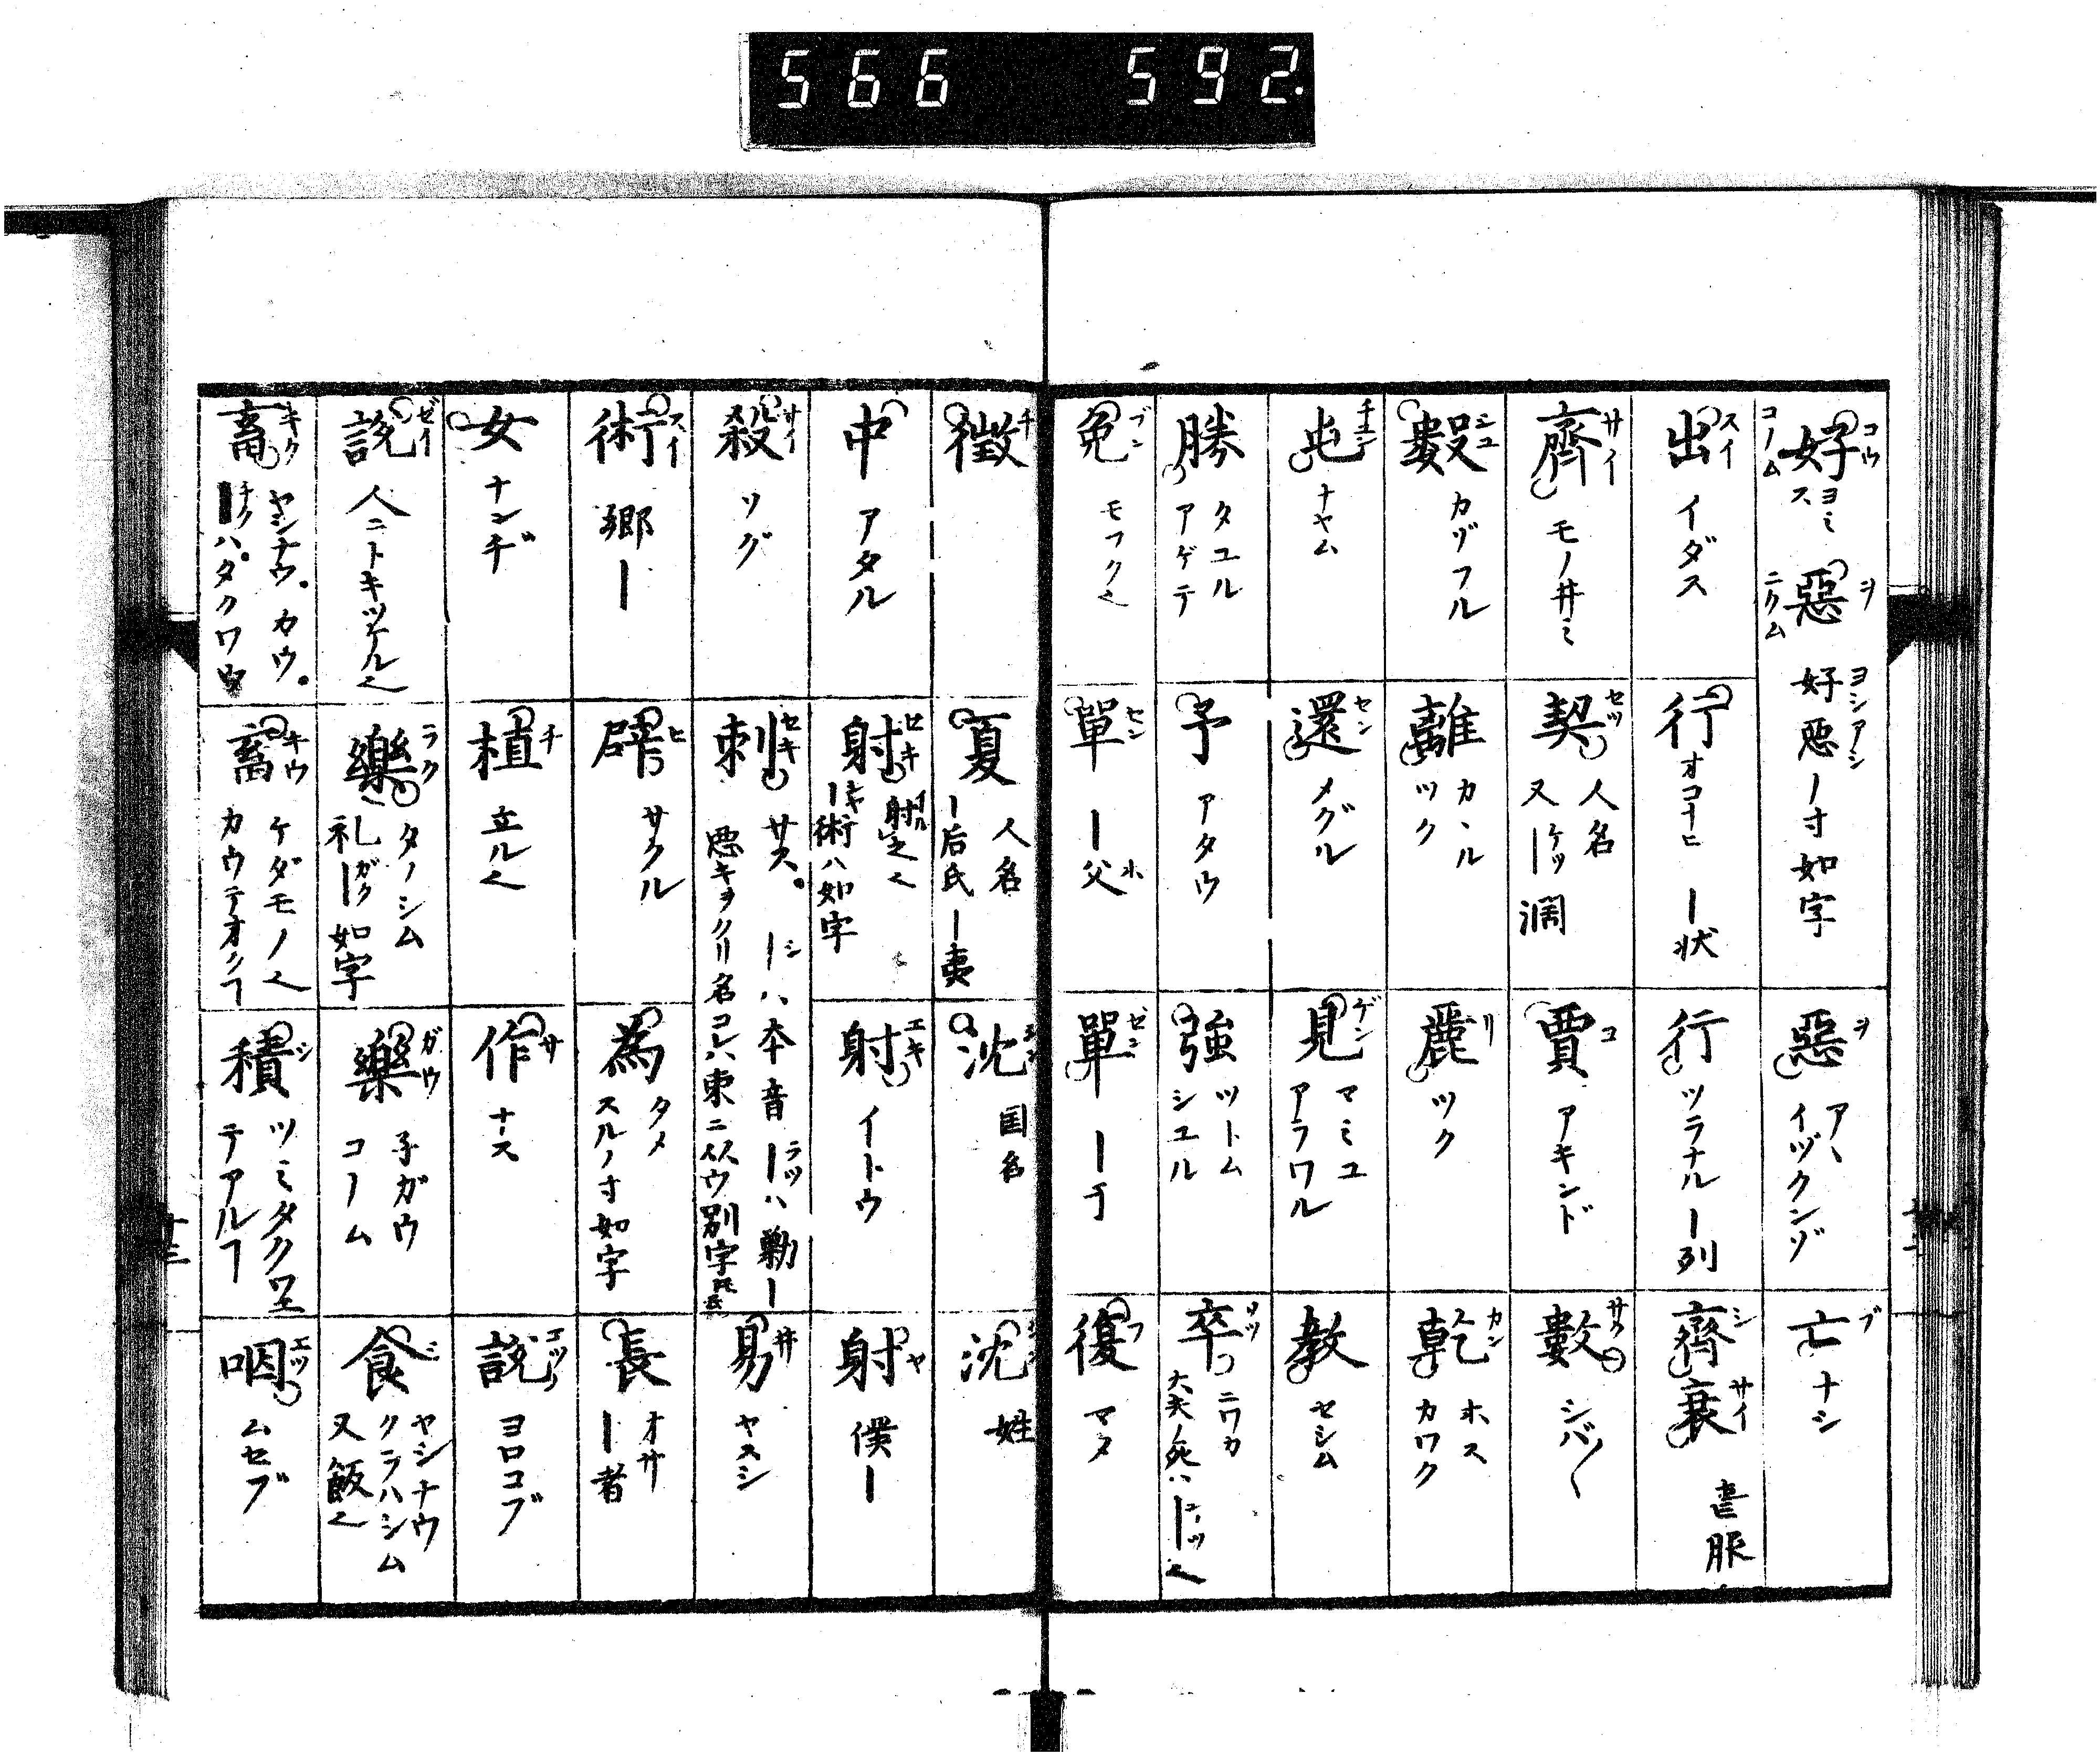 566 592.
好 コウ コノム ヨミス 惡 ヲ ニクム 好惡ノ寸如字 ヨシアシ
惡 ヲ アヽ イヅクンゾ
亡 ブ ナシ
出 スイ イダス
行 オコナヒ ー状
行 ツラナル ー列
齊 シ 衰 サイ
齊 サイ モノ井ミ
契 セツ 人名 又ーケツ濶
賈 コ アキンド
數 サク シバ〱
數 カヅフル
離 カヽル ツク
麗 リ ツク
乾 カン ホス カワク
屯 チユン ナヤム
還 セン メグル
見 ゲン マミユ アラワル
教 セシム
勝 タユル アゲテ
予 アタウ
強 ツトム シユル
卒 ソツ ニワカ 大夫ノ死ハーシユツ也
免 ブン モフク也
單 セン ー父 ホ
單 ゼン ー于
復 フ マタ
徴 チ
夏 人名 ー后氏 ー夷
沈 国名
沈 姓
中 アタル
射 セキ 射之也 ー術ハ如字
射 エキ イトウ
射 ヤ 僕ー
殺 サイ ソグ
刺 セキ サス。ーシハ本音 ーラツハ
易 井 ヤスシ
術 スイ 郷ー
辟 ヒ サクル
為 タメ スルノ寸如字
長 オサ ー者
女 ナンヂ
植 チ 立ル也
作 サ ナス
説 ヨロコブ
説 ゼイ 人ニトキツケル也
樂 ラク タノシム 礼ーガク如字
樂 ガウ 子ガウ コノム
食 シ ヤシナウ クラハシム 又飯也
畜 キク ヤシナウ。カウ。ーチクハ。タクワウ
畜 キウ ケダモノ也 カウテオクヿ
積 シ テアルヿ
咽 エツ ムセブ